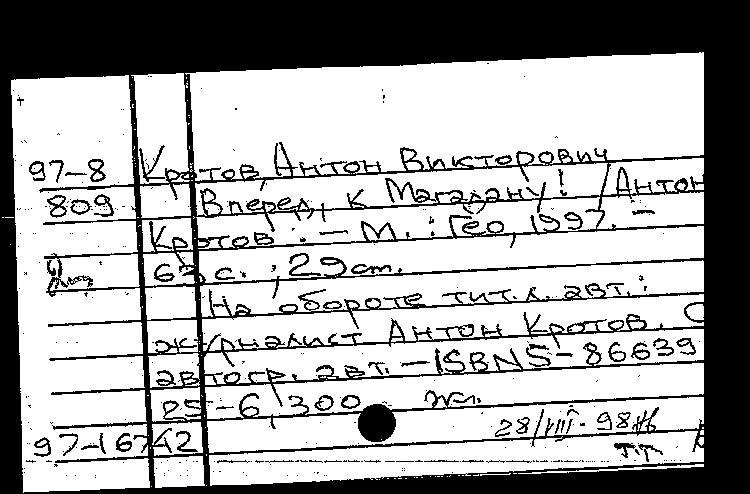 97-8 Кротов, Антон Викторович
809 Вперед, к Магадану! / Антон
Кротов. - М. : Гео, 1997. -
63 с. ; 29 cm.
На обороте тит. л. авт.:
журналист Антон Кротов. С
автогр. авт. - ISBN 5-86639
05-6, 300
97-16742 28/VIII-98